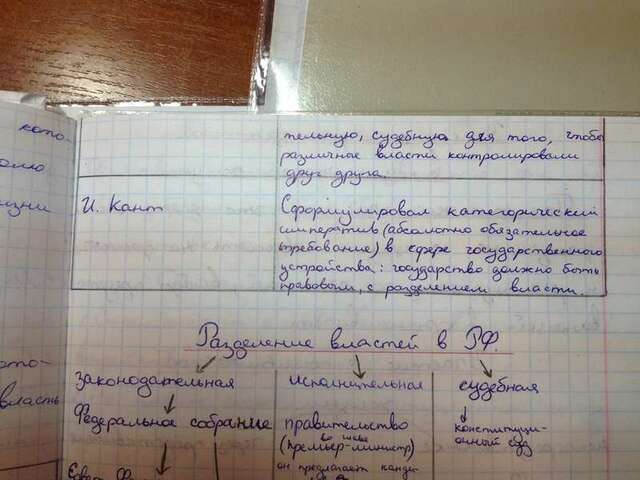 тельную, судебную для того, чтобы
различные власти контролировали
друг друга.
И. Кант
Сформулировал категорический
императив (абсолютно обязательное
требование) в сфере государственного
устройства: государство должно быть
правовым с разделением власти.
Разделение властей в РФ.
законодательная
исполнительная
судебная
Федеральное собрание
правительство
(премьер-министр)
он предлагает
конституци-
онный суд
власть